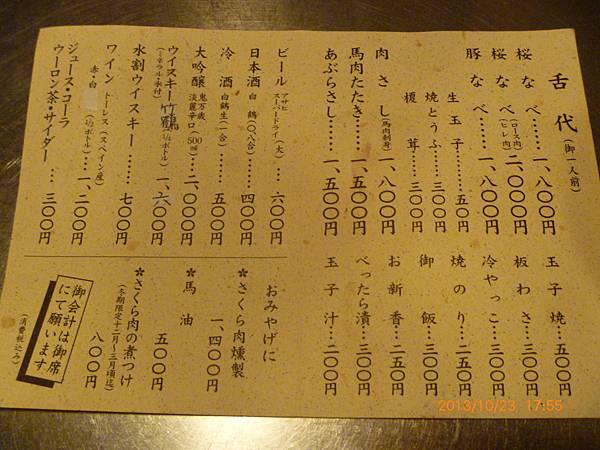 舌代(御一人前)
桜なべ……一、八〇〇円
桜なべ(ロース肉)(ヒレ肉)二、〇〇〇円
豚なべ……一、八〇〇円
生玉子……五〇円
焼とうふ…三〇〇円
榎茸…三〇〇円
肉さし(馬肉刺身)一、八〇〇円
馬肉たたき…一、五〇〇円
あぶらさし…一、五〇〇円
玉子焼…五〇〇円
板わさ…三〇〇円
冷やっこ…三〇〇円
焼のり…二〇〇円
御飯…三〇〇円
お新香…二五〇円
べったら漬…三〇〇円
玉子汁…二〇〇円
ビール アサヒスーパードライ(大)…六〇〇円
日本酒 白鶴(〇.八合)…四〇〇円
冷酒 白鶴生(一合)…五〇〇円
大吟醸 鬼万歳 淡麗辛口(500㎖)二、〇〇〇円
ウイスキー竹鶴(½ボトル)一、六〇〇円
(ミネラル・氷付)
水割ウイスキー……七〇〇円
ワイン トーレス(スペイン産)
赤・白(½ボトル)一、二〇〇円
ジュース・コーラ
ウーロン茶・サイダー…三〇〇円
おみやげに
*さくら肉燻製
一、四〇〇円
*馬油
五〇〇円
*さくら肉の煮つけ
(冬期限定十二月〜三月頃迄)
八〇〇円
御会計は御席
にて願います
(消費税込み)
2013/10/23 17:55